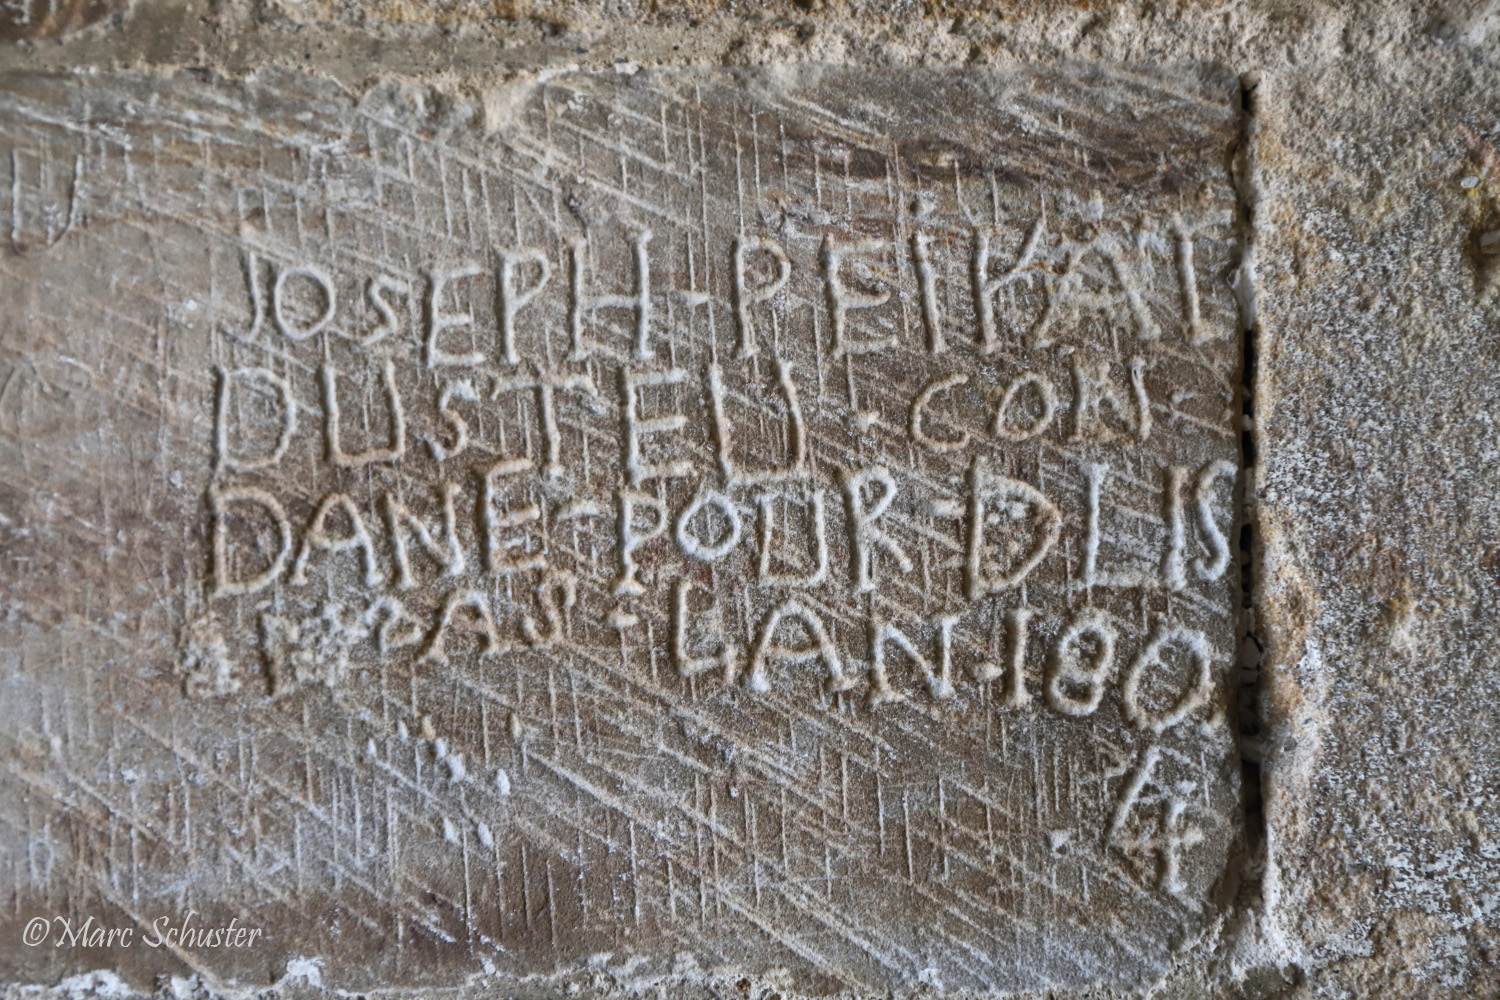 JOSEPH-PEIKAL
DUSTEU. CON-
DANE-POUR-DLIS
PAS. LAN.180
4
©Marc Schuster